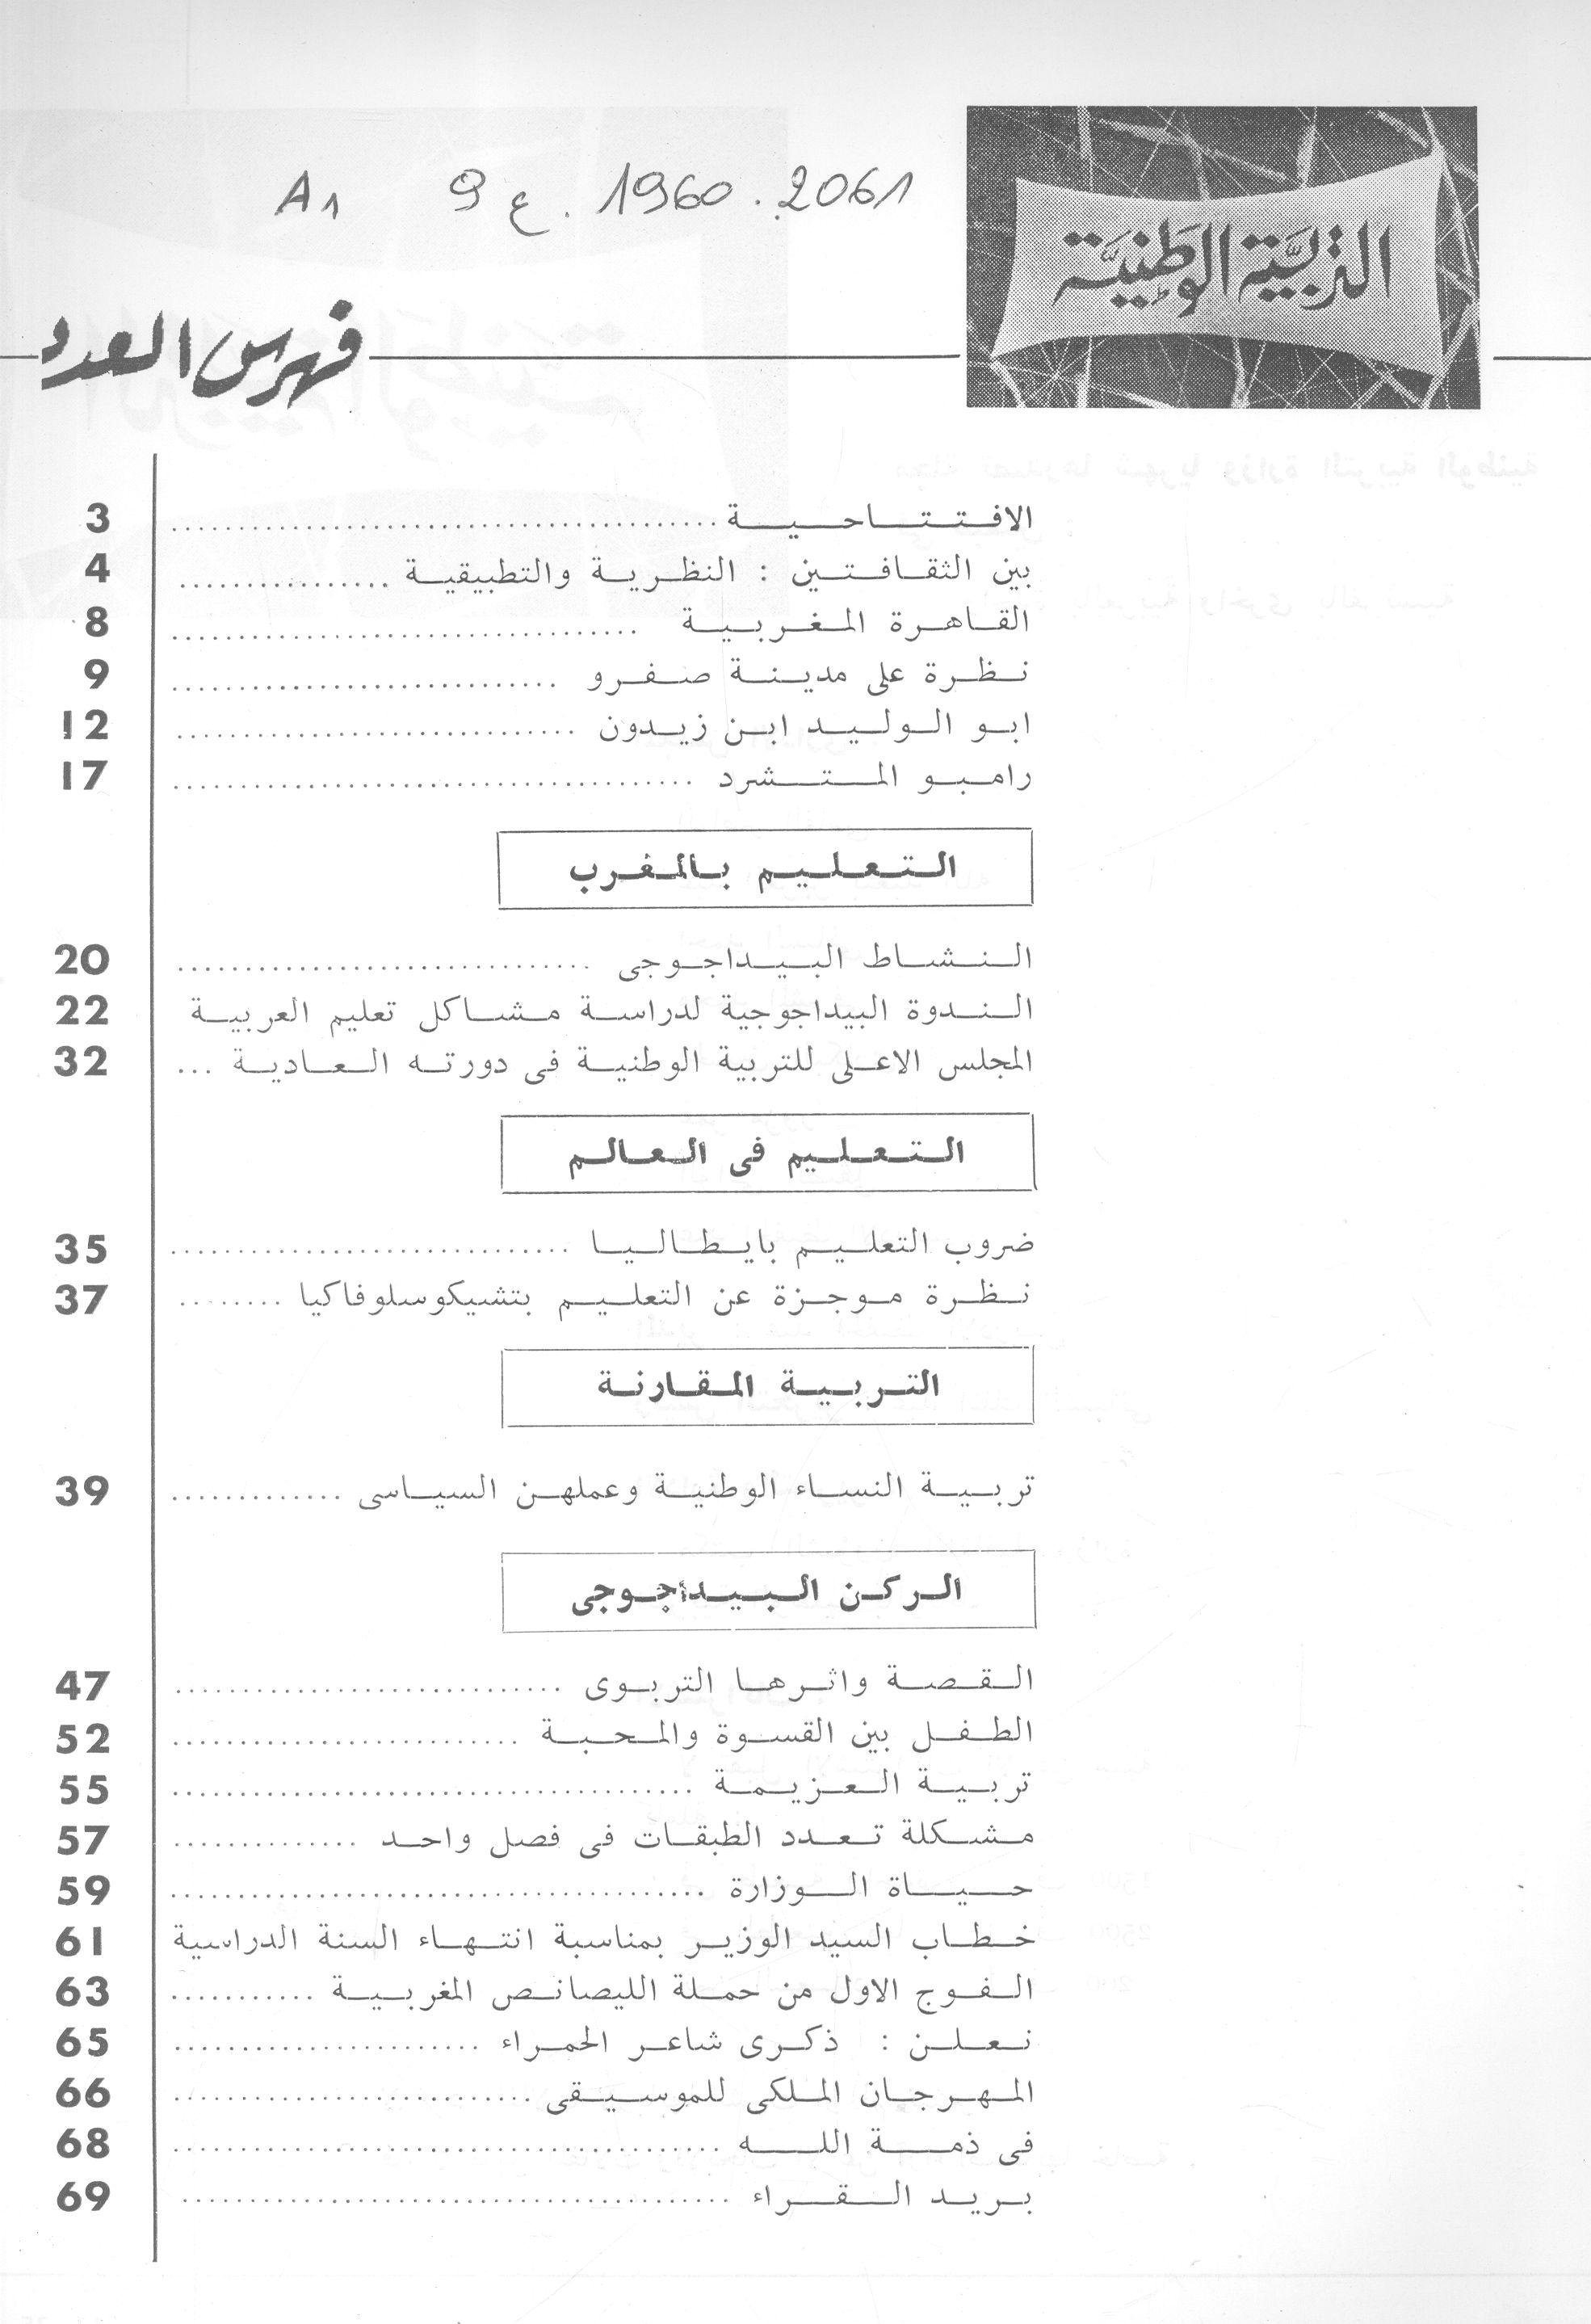 A1 9 ع . 1960 . 2061
التربية الوطنية
فهرس العدد
الافتتاحية ........ 3
بين الثقافتين : النظرية والتطبيقية ........ 4
القاهرة المغربية ........ 8
نظرة على مدينة صفرو ........ 9
ابو الوليد ابن زيدون ........ 12
رامبو المتشرد ........ 17
التعليم بالمغرب
النشاط البيداجوجى ........ 20
الندوة البيداجوجية لدراسة مشاكل تعليم العربية 22
المجلس الاعلى للتربية الوطنية فى دورته العادية ... 32
التعليم فى العالم
ضروب التعليم بايطاليا ........ 35
نظرة موجزة عن التعليم بتشيكوسلوفاكيا ........ 37
التربية المقارنة
تربية النساء الوطنية وعملهن السياسى ........ 39
الركن البيداجوجى
القصة واثرها التربوى ........ 47
الطفل بين القسوة والمحبة ........ 52
تربية العزيمة ........ 55
مشكلة تعدد الطبقات فى فصل واحد ........ 57
حياة الوزارة ........ 59
خطاب السيد الوزير بمناسبة انتهاء السنة الدراسية 61
الفوج الاول من حملة الليصانص المغربية ........ 63
نعلن : ذكرى شاعر الحمراء ........ 65
المهرجان الملكى للموسيقى ........ 66
فى ذمة الله ........ 68
بريد القراء ........ 69